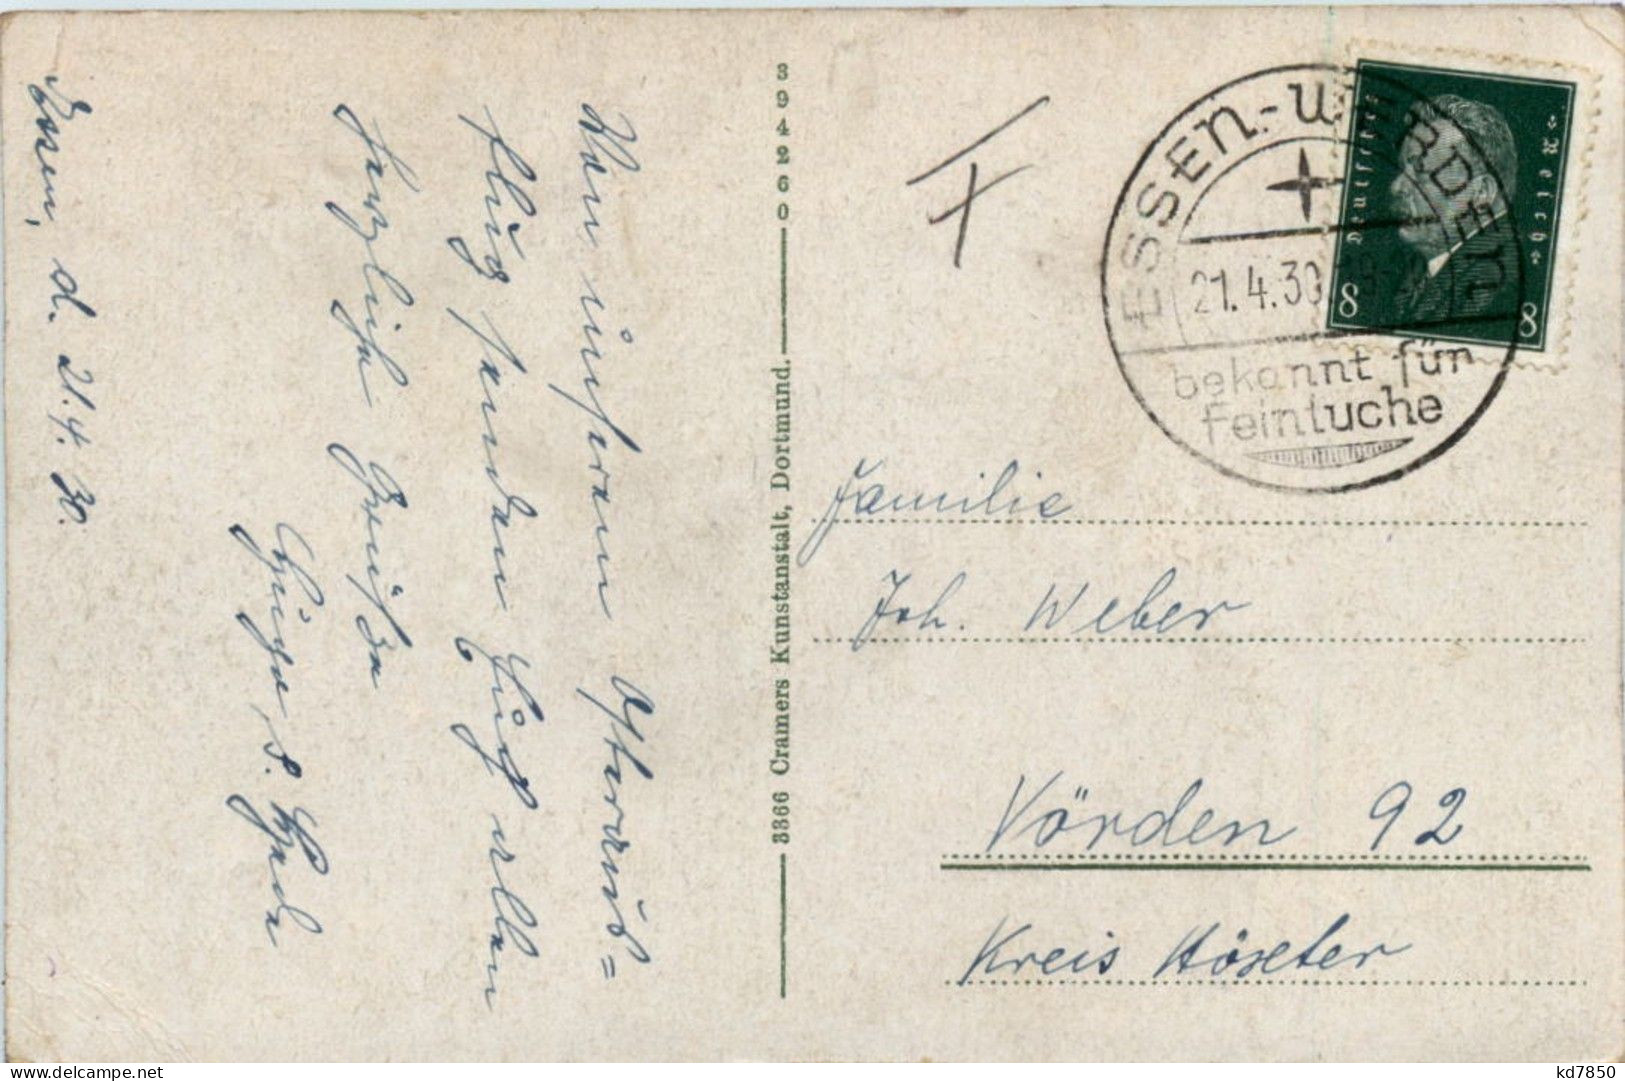 Essen, d. 21.4.30.
Von unserem Osteraus=
flug senden Euch allen
herzliche Grüße
394260
3366 Cramers Kunstanstalt, Dortmund.
ESSEN-WERDEN
21.4.30
bekannt für
Feintuche
Deutsches Reich
8 8
Familie
Joh. Weber
Vörden 92
Kreis Höxter
kd7850